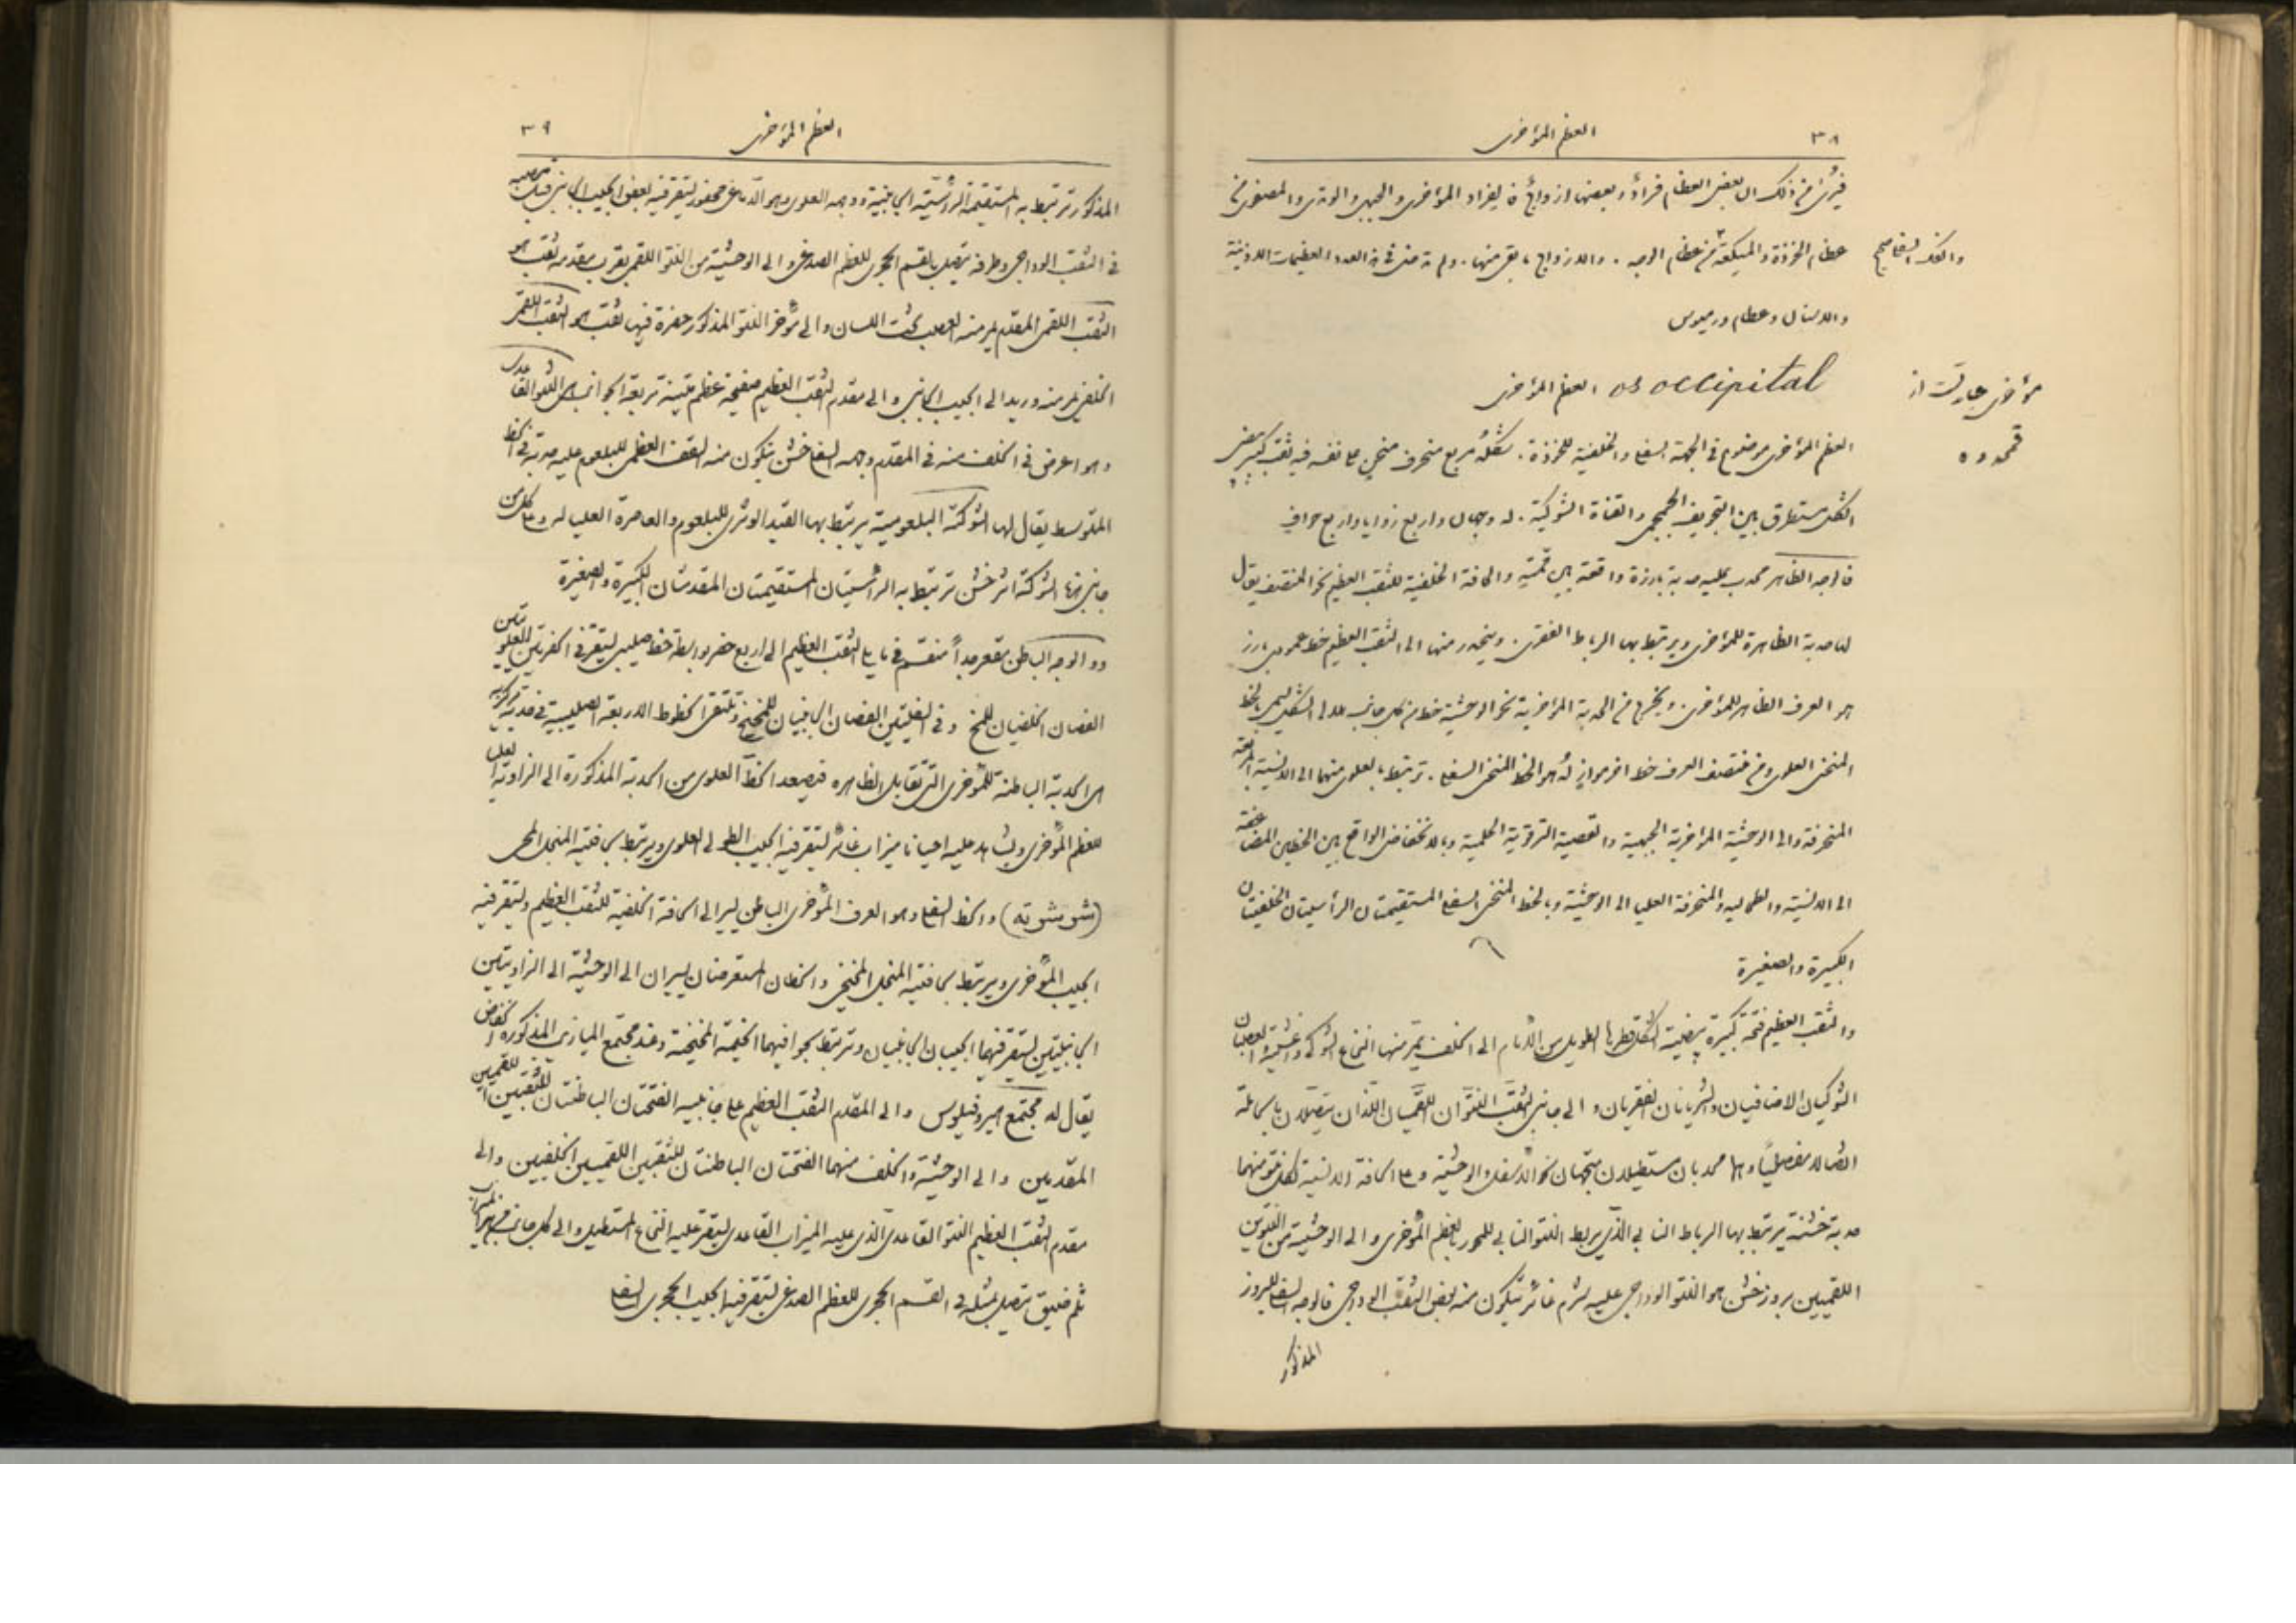 ٣٨
العظم المؤخرى
فيرى من ذلك ان بعض العظام فرادً وبعضها ازواجً فالافراد المؤخرى والجبهى والوتدى والمصفوى من
عظام الخوذة والميكعة من عظام الوجه . والازواج ما بقى منها . ولم تدخل فى هذا العدد العظيمات الاذنية
والفك السفلى
والاسنان وعظام ورميوس
os occipital العظم المؤخرى
مؤخرى عبارتست از
قمحدوه
العظم المؤخرى موضوع فى الجهة السفلى والخلفية للخوذة . شكله مربع منحرف منحنٍ على نفسه فيه ثقب كبير بيضى
الشكل مستطرق بين التجويف الجمجمى والقناة الشوكية . له وجهان واربع زوايا واربع حوافى
فالوجه الظاهر محدب عليه حدبة بارزة واقعة بين قمته والحافة الخلفية للثقب العظيم نحو المنتصف يقال
لها حدبة الظاهرة للمؤخرى ويرتبط بها الرباط الفقرى . وينحدر منها الى الثقب العظيم خط عمودى بارز
هو العرف الظاهر للمؤخرى . ويخرج من الحدبة المؤخرية نحو الوحشية خط من كل جانب هلالى الشكل يسمى بالخط
المنحنى العلوى ومن منتصف العرف خط اخر موازٍ له هو الخط المنحنى السفلى . ترتبط بالعلوى منهما الى الانسية المربعة
المنحرفة والى الوحشية المؤخرية الجبهية والقصية الترقوية الحلمية وبالانخفاض الواقع بين الخطين المضاعفة
الى الانسية والطحالية والمنحرفة العليا الى الوحشية وبالخط المنحنى السفلى المستقيمتان الرأسيتان الخلفيتان
الكبيرة والصغيرة
والثقب العظيم فتحة كبيرة بيضية الشكل قطرها الطويل من الامام الى الخلف يمر منها النخاع الشوكى واغشيته العصبان
الشوكيان الاضافيان والشريانان الفقريان والى جانبى الثقب النتوّان اللقميان اللذان يتصلان بالحاملة
اتصالا مفصلياً وهما محدبان مستطيلان متجهان نحو الاسفل والوحشية وعلى الحافة الانسية لكل نتو منهما
حدبة خشنة يرتبط بها الرباط النابى الذى يربط النتو النابى للمحور بالعظم المؤخرى والى الوحشية من النتوين
اللقميين بروز خشن هو النتو الوداجى عليه شرم غائر تتكون منه بعض الثقب الوداجى فالوجه السفلى للبروز
المذكور
العظم المؤخرى
٣٩
المذكور ترتبط به المستقيمة الرأسية الجانبية ووجهه العلوى وهو الدماغى محفور ليتقر فيه بعض الجيب الجانبى قبل
فى الثقب الوداجى وطرفه يتصل بالقسم الحجرى للعظم الصدغى والى الوحشية من النتو اللقمى بقرب مقدمه ثقب هو
الثقب اللقمى المقدم يمر منه العصب تحت اللسان والى مؤخر النتو المذكور حفرة فيها ثقب هو الثقب اللقمى
الخلفى يمر منه وريد الى الجيب الجانبى والى مقدم الثقب العظيم صفيحة عظم متينة تربيعة الجوانب هى النتو القاعدى
وهو اعرض فى الخلف منه فى المقدم وجهه السفلى خشن يتكون منه السقف العظمى للبلعوم عليه حدبة فى الخط
المتوسط يقال لها الشوكة البلعومية يرتبط بها القيد الوترى للبلعوم والعاصرة العليا له وعلى كل من
جانبى هذه الشوكة اثر خشن ترتبط به الرأسيتان المستقيمتان المقدمتان الكبيرة والصغيرة
والوجه الباطن مقعر جداً منقسم فى ما يلى الثقب العظيم الى اربع حفر بواسطة خط صليبى ليتقر فى الحفرتين العلويتين
الفصان الخلفيان للمخ وفى السفليتين الفصان الجانبيان للمخيخ وتلتقى الخطوط الاربعة الصليبية فى حدبة مركزية
هى الحدبة الباطنة للمؤخرى التى تقابل الظاهرة فيصعد الخط العلوى من الحدبة المذكورة الى الزاوية العليا
للعظم المؤخرى ويشاهد عليه احيانا ميزاب غائر ليتقر فيه الجيب الطولى العلوى ويرتبط بحافتيه المنجل المخى
(شو شو ته) والخط السفلى وهو العرف المؤخرى الباطن يسير الى الحافة الخلفية للثقب العظيم وليتقر فيه
الجيب المؤخرى ويرتبط بحافتيه المنجل المخيخى والخطان المستعرضان يسيران الى الوحشية الى الزاويتين
الجانبيتين ليتقر فيهما الجيبان الجانبيان وترتبط بحوافيهما الخيمة المخيخية وعند مجتمع الميازيب المذكورة انخفاض
يقال له مجتمع هيروفيلوس والى المقدم الثقب العظيم على جانبيه الفتحتان الباطنتان للثقبين اللقميين
المقدمين والى الوحشية والخلف منهما الفتحتان الباطنتان للثقبين اللقميين الخلفيين والى
مقدم الثقب العظيم النتو القاعدى الذى عليه الميزاب القاعدى ليتقر عليه النخاع المستطيل والى كل جانب من هذا الميزاب
ثلم ضيق يتصل بمثله فى القسم الحجرى للعظم الصدغى ليتقر فيه الجيب الحجرى السفلى